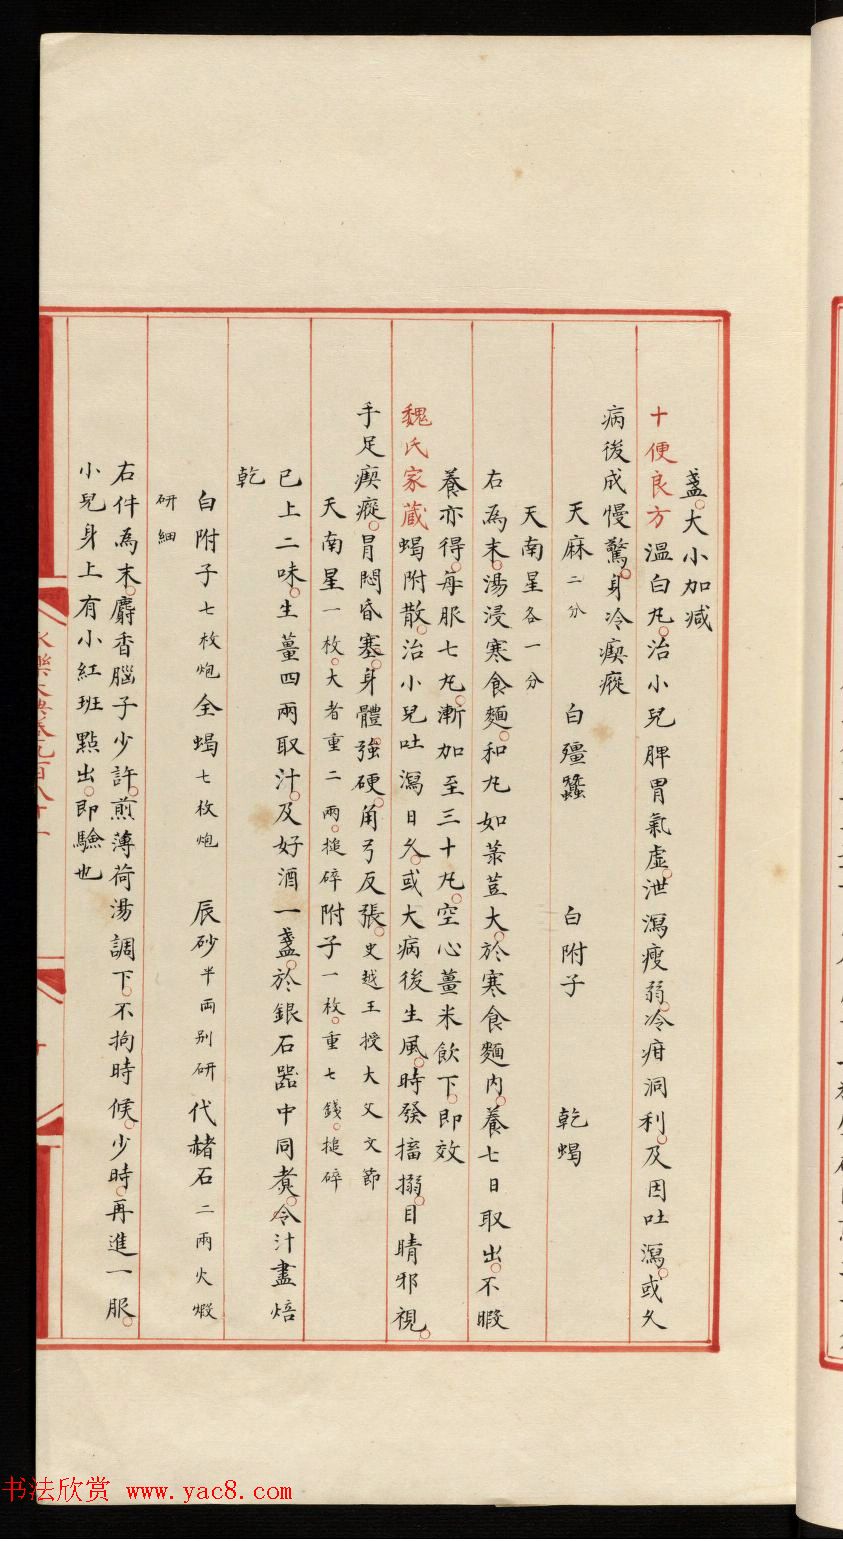 盞。大小加减
十便良方温白丸。治小兒脾胃氣虚。泄瀉瘦弱。冷疳洞利。及因吐瀉。或久
病後成慢驚。身冷瘈瘲
天麻二分 白殭蠶 白附子 乾蝎
天南星各一分
右為末。湯浸寒食麵。和丸如菉荳大。於寒食麵內。養七日取出。不暇
養亦得。每服七丸。漸加至三十丸。空心薑米飲下。即效
魏氏家藏蝎附散。治小兒吐瀉日久。或大病後生風。時發搐搦。目睛邪視。
手足瘈瘲。胃悶昏塞。身體強硬。角弓反張。史越王授大父文節
天南星一枚。大者重二兩。搥碎附子一枚。重七錢。搥碎
已上二味。生薑四兩取汁。及好酒一盞。於銀石器中同煑。令汁盡焙
乾
白附子七枚炮全蝎七枚炮 辰砂半両别研代赭石二兩火煆
研細
右件為末。麝香腦子少許。煎薄荷湯調下。不拘時候。少時。再進一服。
小兒身上有小紅班點出。即驗也
书法欣赏 www.yac8.com